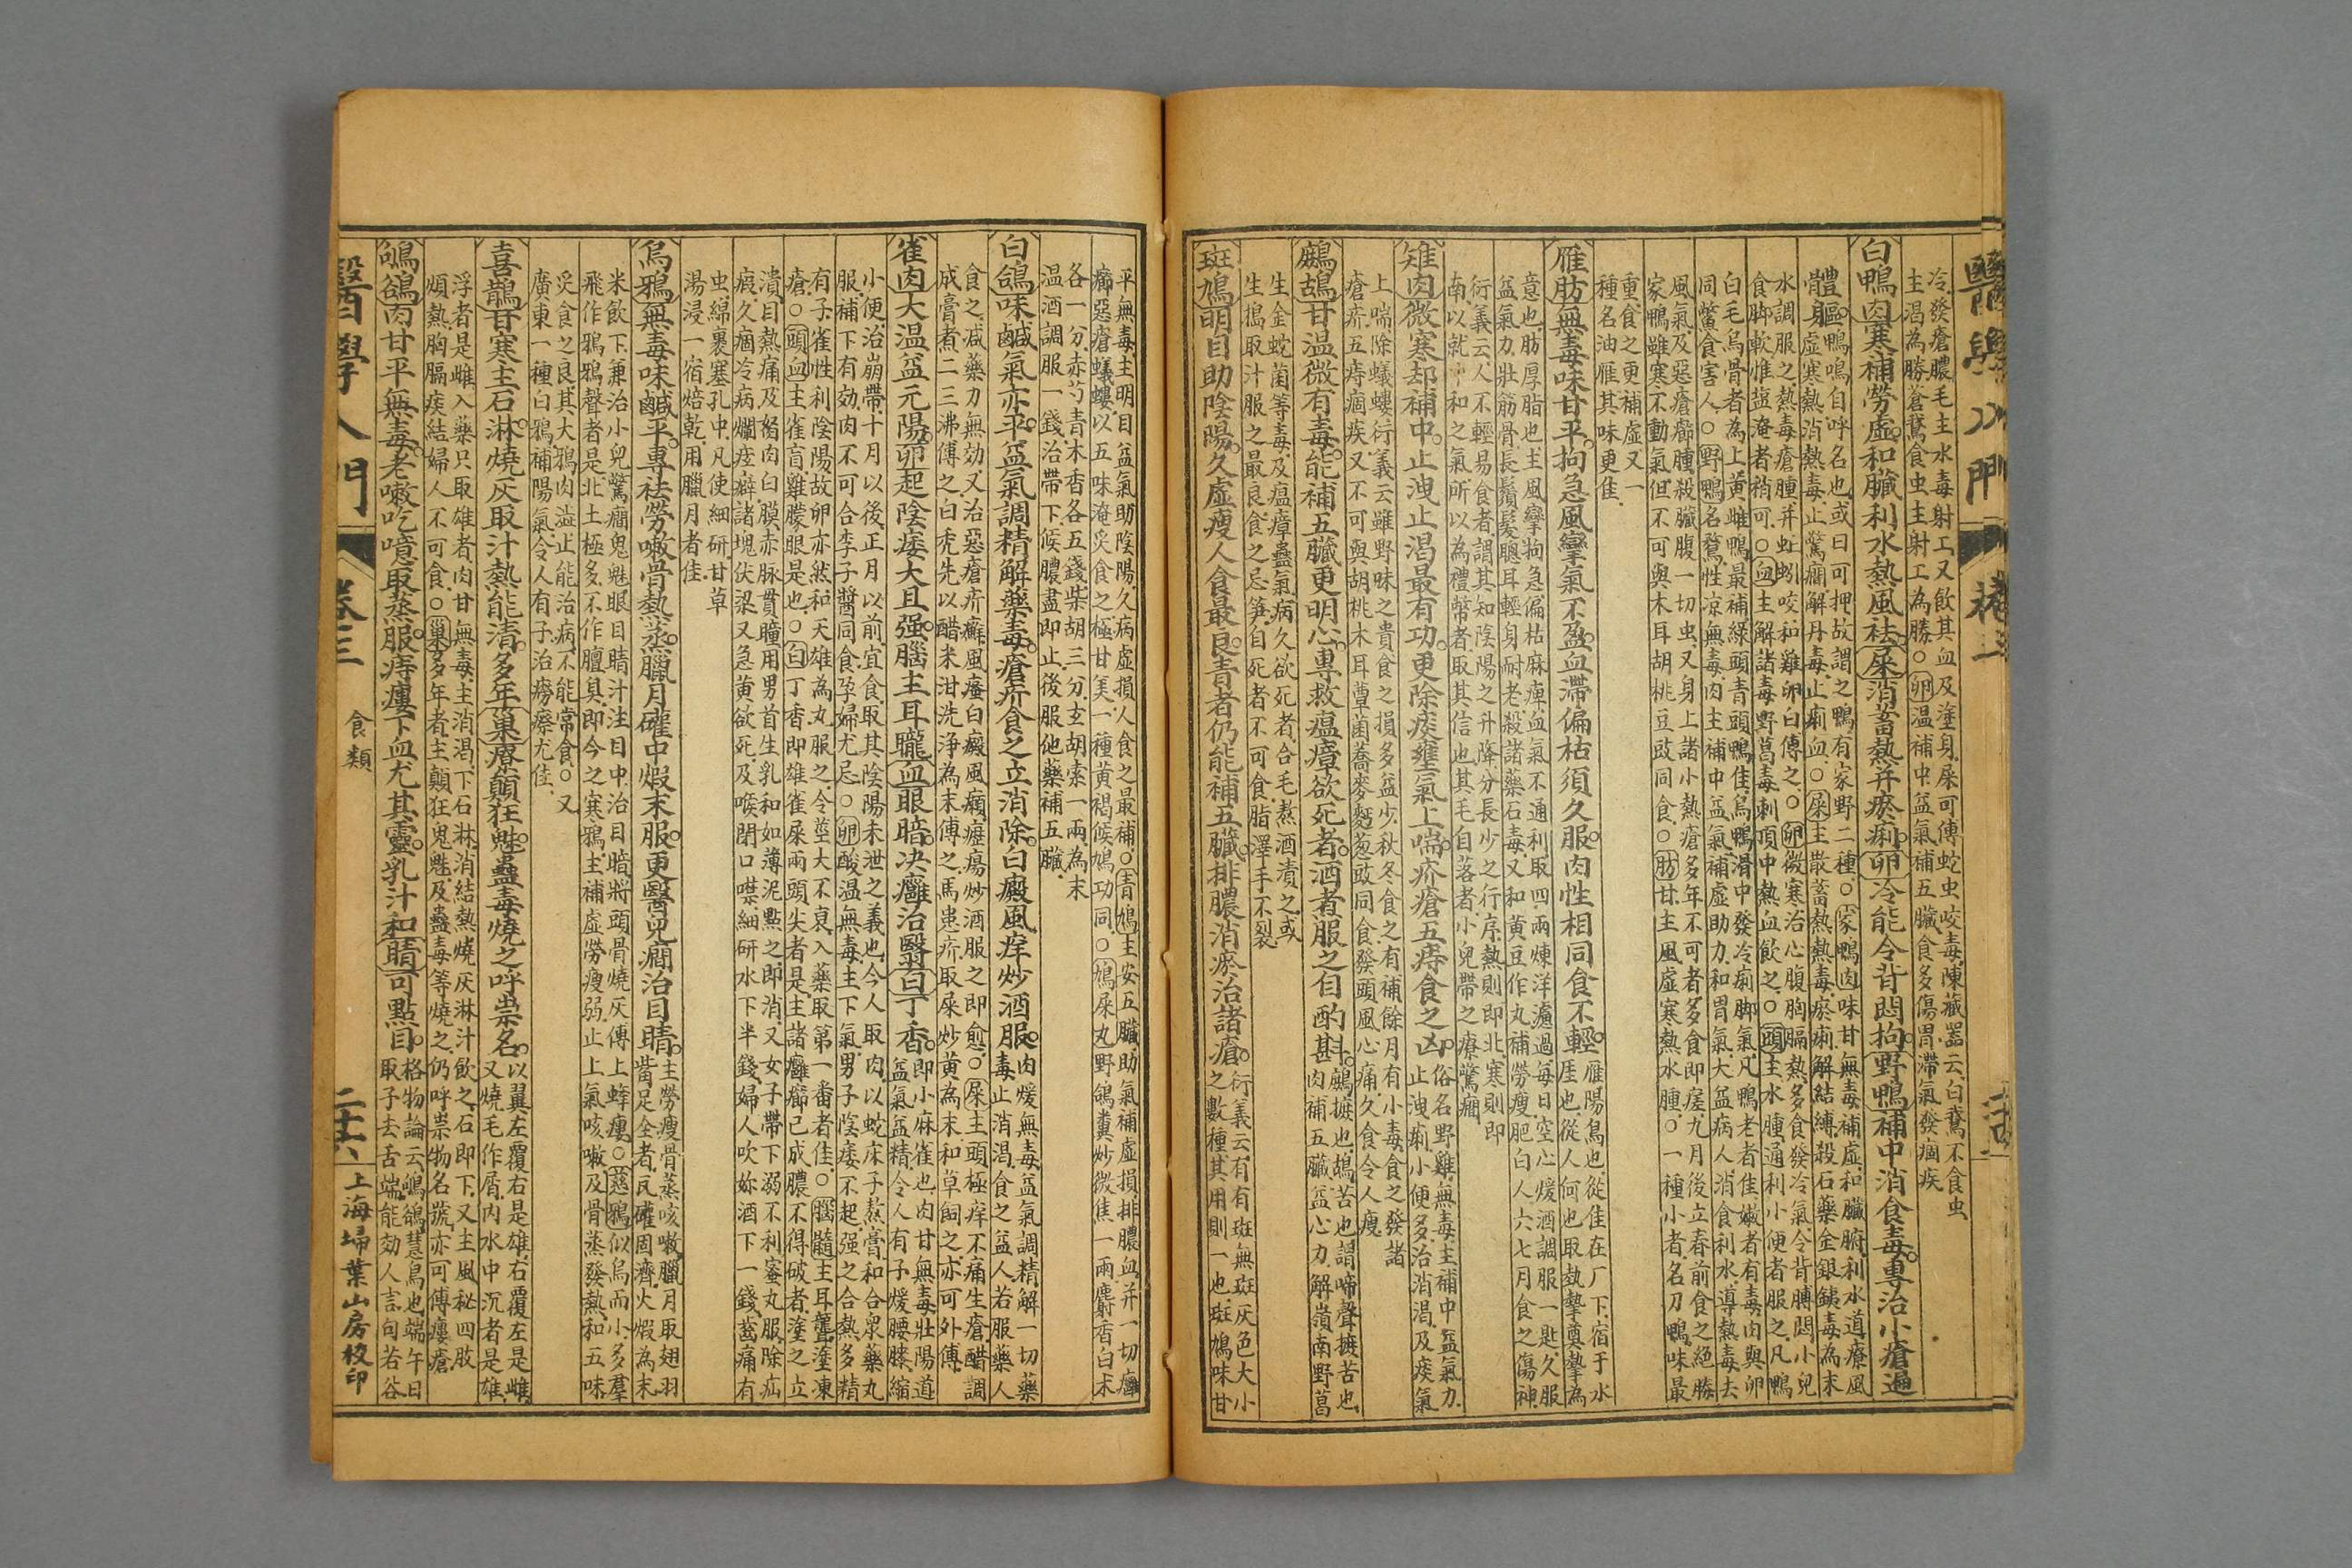 冷發瘡膿毛主水毒射工又飲其血及塗身屎可傅蛇虫咬毒陳藏器云白鵞不食虫
主渴為勝蒼鵞食虫主射工為勝○卵溫補中益氣補五臟食多傷胃滯氣發痼疾
白鴨肉寒補勞虛和臟利水熱風祛屎消蓄熱并瘀痢卵冷能令背悶拘野鴨補中消食毒專治小瘡遍
體軀鴨鳴自呼名也或曰可押故謂之鴨有家野二種○家鴨肉味甘無毒補虛和臟腑利水道療風
身虛寒熱消熱毒止驚癇解丹毒止痢血○屎主散蓄熱熱毒瘀痢解結縛殺石藥金銀銕毒為末
水調服之熱毒瘡腫并蚯蚓咬和雞卵白傅之○卵微寒治心腹胸膈熱多食發冷氣令背膊悶小兒
食脚軟惟盐淹者稍可○血主解諸毒野葛毒刺頂中熱血飲之○頭主水腫通利小便者服之凡鴨
白毛烏骨者為上黃雌鴨最補綠頭青頭鴨佳烏鴨滑中發冷痢脚氣凡鴨老者佳嫩者有毒肉與卵
同鱉食害人○野鴨名鶩性涼無毒肉主補中益氣補虛助力和胃氣大益病人消食利水導熱毒去
風氣及惡瘡癤腫殺臟腹一切虫又身上諸小熱瘡多年不可者多食即瘥九月後立春前食之絕勝
家鴨雖寒不動氣但不可與木耳胡桃豆豉同食○肪甘主風虛寒熱水腫○一種小者名刀鴨味最
重食之更補虛又一
種名油雁其味更佳
雁肪無毒味甘平拘急風攣氣不盈血滯偏枯須久服肉性相同食不輕雁陽鳥也從隹在厂下宿于水
厓也從人何也取執摯奠摯為
意也肪厚脂也主風攣拘急偏枯麻痺血氣不通利取四兩煉洋濾過每日空心煖酒調服一匙久服
益氣力壯筋骨長鬚髮聰耳輕身耐老殺諸藥石毒又和黃豆作丸補勞瘦肥白人六七月食之傷神
衍義云人不輕易食者謂其知陰陽之升降分長少之行序熱則即北寒則即
南以就中和之氣所以為禮幣者取其信也其毛自落者小兒帶之療驚癇
雉肉微寒却補中止洩止渴最有功更除痰壅氣上喘疥瘡五痔食之凶俗名野雞無毒主補中益氣力
止洩痢小便多治消渴及痰氣
上喘除蟻螻衍義云雖野味之貴食之損多益少秋冬食之有補餘月有小毒食之發諸
瘡疥五痔痼疾又不可與胡桃木耳蕈菌蕎麥麪葱豉同食發頭風心痛久食令人瘦
鷓鴣甘溫微有毒能補五臟更明心專救瘟瘴欲死者酒者服之自酌斟鷓摭也鴣苦也謂啼聲摭苦也
肉補五臟益心力解嶺南野葛
生金蛇菌等毒及瘟瘴蠱氣病久欲死者合毛熬酒漬之或
生搗取汁服之最良食之忌笋自死者不可食脂澤手不裂
斑鳩明目助陰陽久虛瘦人食最良青者仍能補五臟排膿消瘀治諸瘡衍義云有有斑無斑灰色大小
之數種其用則一也斑鳩味甘
平無毒主明目益氣助陰陽久病虛損人食之最補○青鳩主安五臟助氣補虛損排膿血并一切瘡
癤惡瘡蟻螻以五味淹炙食之極甘美一種黃褐候鳩功同○鳩屎丸野鴿糞炒微焦一兩麝香白术
各一分赤芍青木香各五錢柴胡三分玄胡索一兩為末
溫酒調服一錢治帶下候膿盡即止後服他藥補五臟
白鴿味鹹氣亦平益氣調精解藥毒瘡疥食之立消除白癜風痒炒酒服肉煖無毒益氣調精解一切藥
毒止消渴食之益人若服藥人
食之減藥力無効又治惡瘡疥癬風瘙白癜風癘瘍炒酒服之即愈○屎主頭極痒不痛生瘡醋調
成膏者煮二三沸傅之白禿先以醋米泔洗淨為末傅之馬患疥取屎炒黃為末和草飼之亦可外傅
雀肉大溫益元陽卵起陰痿大且强腦主耳聾血眼暗决癰治翳白丁香即小麻雀也肉甘無毒壯陽道
益氣益精令人有子煖腰膝縮
小便治崩帶十月以後正月以前宜食取其陰陽未泄之義也今人取肉以蛇床子熬膏和合衆藥丸
服補下有効肉不可合李子醬同食孕婦尤忌○卵酸溫無毒主下氣男子陰痿不起强之合熱多精
有子雀性利陰陽故卵亦然和天雄為丸服之令莖大不衰入藥取第一番者佳○腦髓主耳聾塗凍
瘡○頭血主雀盲雞朦眼是也○白丁香即雄雀屎兩頭尖者是主諸癰癤已成膿不得破者塗之立
潰目熱痛及努肉白膜赤脉貫瞳用男首生乳和如薄泥點之即消又女子帶下溺不利蜜丸服除疝
瘕久痼冷病爛痓癖諸塊伏梁又急黃欲死及喉閉口噤細研水下半錢婦人吹妳酒下一錢齒痛有
虫綿裹塞孔中凡使細研甘草
湯浸一宿焙乾用臘月者佳
烏鴉無毒味鹹平專祛勞嗽骨熱蒸臘月礶中煆末服更醫兒癇治目睛主勞瘦骨蒸咳嗽臘月取翅羽
觜足全者瓦礶固濟火煆為末
米飲下兼治小兒驚癇鬼魅眼目睛汁注目中治目暗將頭骨燒灰傅上蜂瘻○慈鴉似烏而小多羣
飛作鴉鴉聲者是北土極多不作膻臭即今之寒鴉主補虛勞瘦弱止上氣咳嗽及骨蒸發熱和五味
炙食之良其大鴉肉澁止能治病不能常食○又
廣東一種白鴉補陽氣令人有子治癆瘵尤佳
喜鵲甘寒主石淋燒灰取汁熱能清多年巢療顛狂魅蠱毒燒之呼祟名以翼左覆右是雄右覆左是雌
又燒毛作屑內水中沉者是雄
浮者是雌入藥只取雄者肉甘無毒主消渴下石淋消結熱燒灰淋汁飲之石即下又主風秘四肢
煩熱胸膈痰結婦人不可食○巢多年者主顛狂鬼魅及蠱毒等燒之仍呼祟物名號亦可傅瘻瘡
鴝鵒肉甘平無毒老嗽吃噫取蒸服痔瘻下血尤其靈乳汁和睛可點目格物論云鴝鵒慧鳥也端午日
取子去舌端能効人言句若谷
醫學入門
卷三
食類
二十六
上海埽葉山房校印